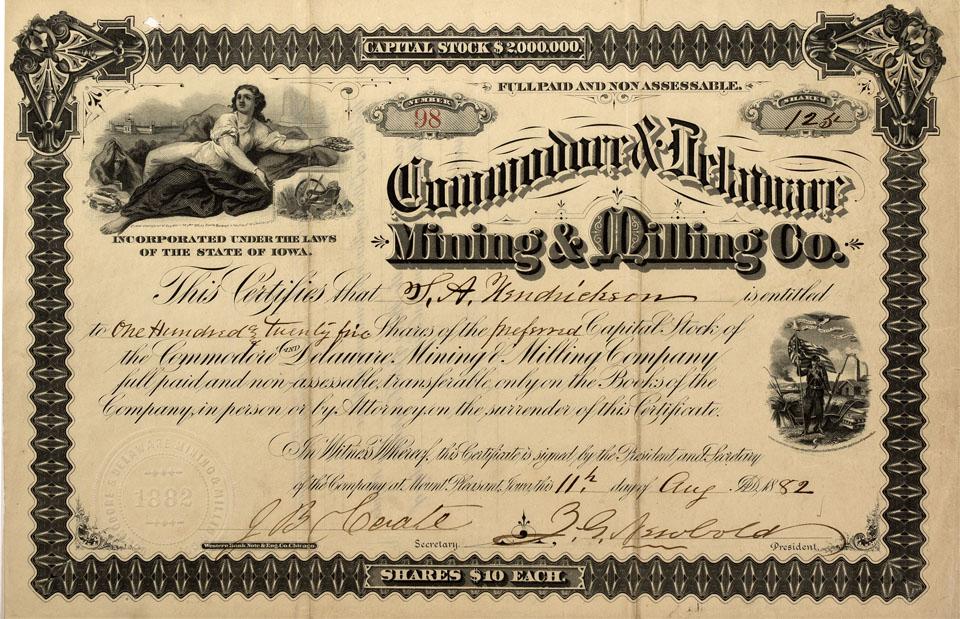 CAPITAL STOCK $2,000,000.
FULL PAID AND NON ASSESSABLE.
NUMBER
98
SHARES
125
Commodore & Delaware
Mining & Milling Co.
INCORPORATED UNDER THE LAWS
OF THE STATE OF IOWA.
This Certifies that S. A. Hendrickson is entitled
to One Hundred & twenty five Shares of the preferred Capital Stock of
the Commodore AND Delaware Mining & Milling Company
full paid and non-assessable, transferable only on the Books of the
Company, in person or by Attorney, on the surrender of this Certificate.
In Witness Whereof, this Certificate is signed by the President and Secretary
of the Company at Mount Pleasant, Iowa this 11th day of Aug A.D. 1882
J B
Secretary.
Newbold
President.
DELAWARE MINING & MILLI
1882
Western Bank Note & Eng. Co. Chicago.
SHARES $10 EACH.